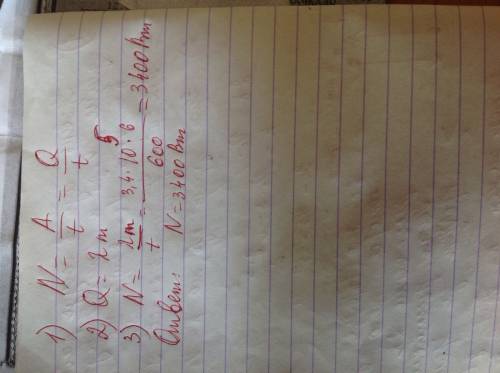 1) N = A/t = Q/t
2) Q = λm
3) N = λm/t = 3,4·10⁵·6/600 = 3400 Вт
Ответ: N = 3400 Вт